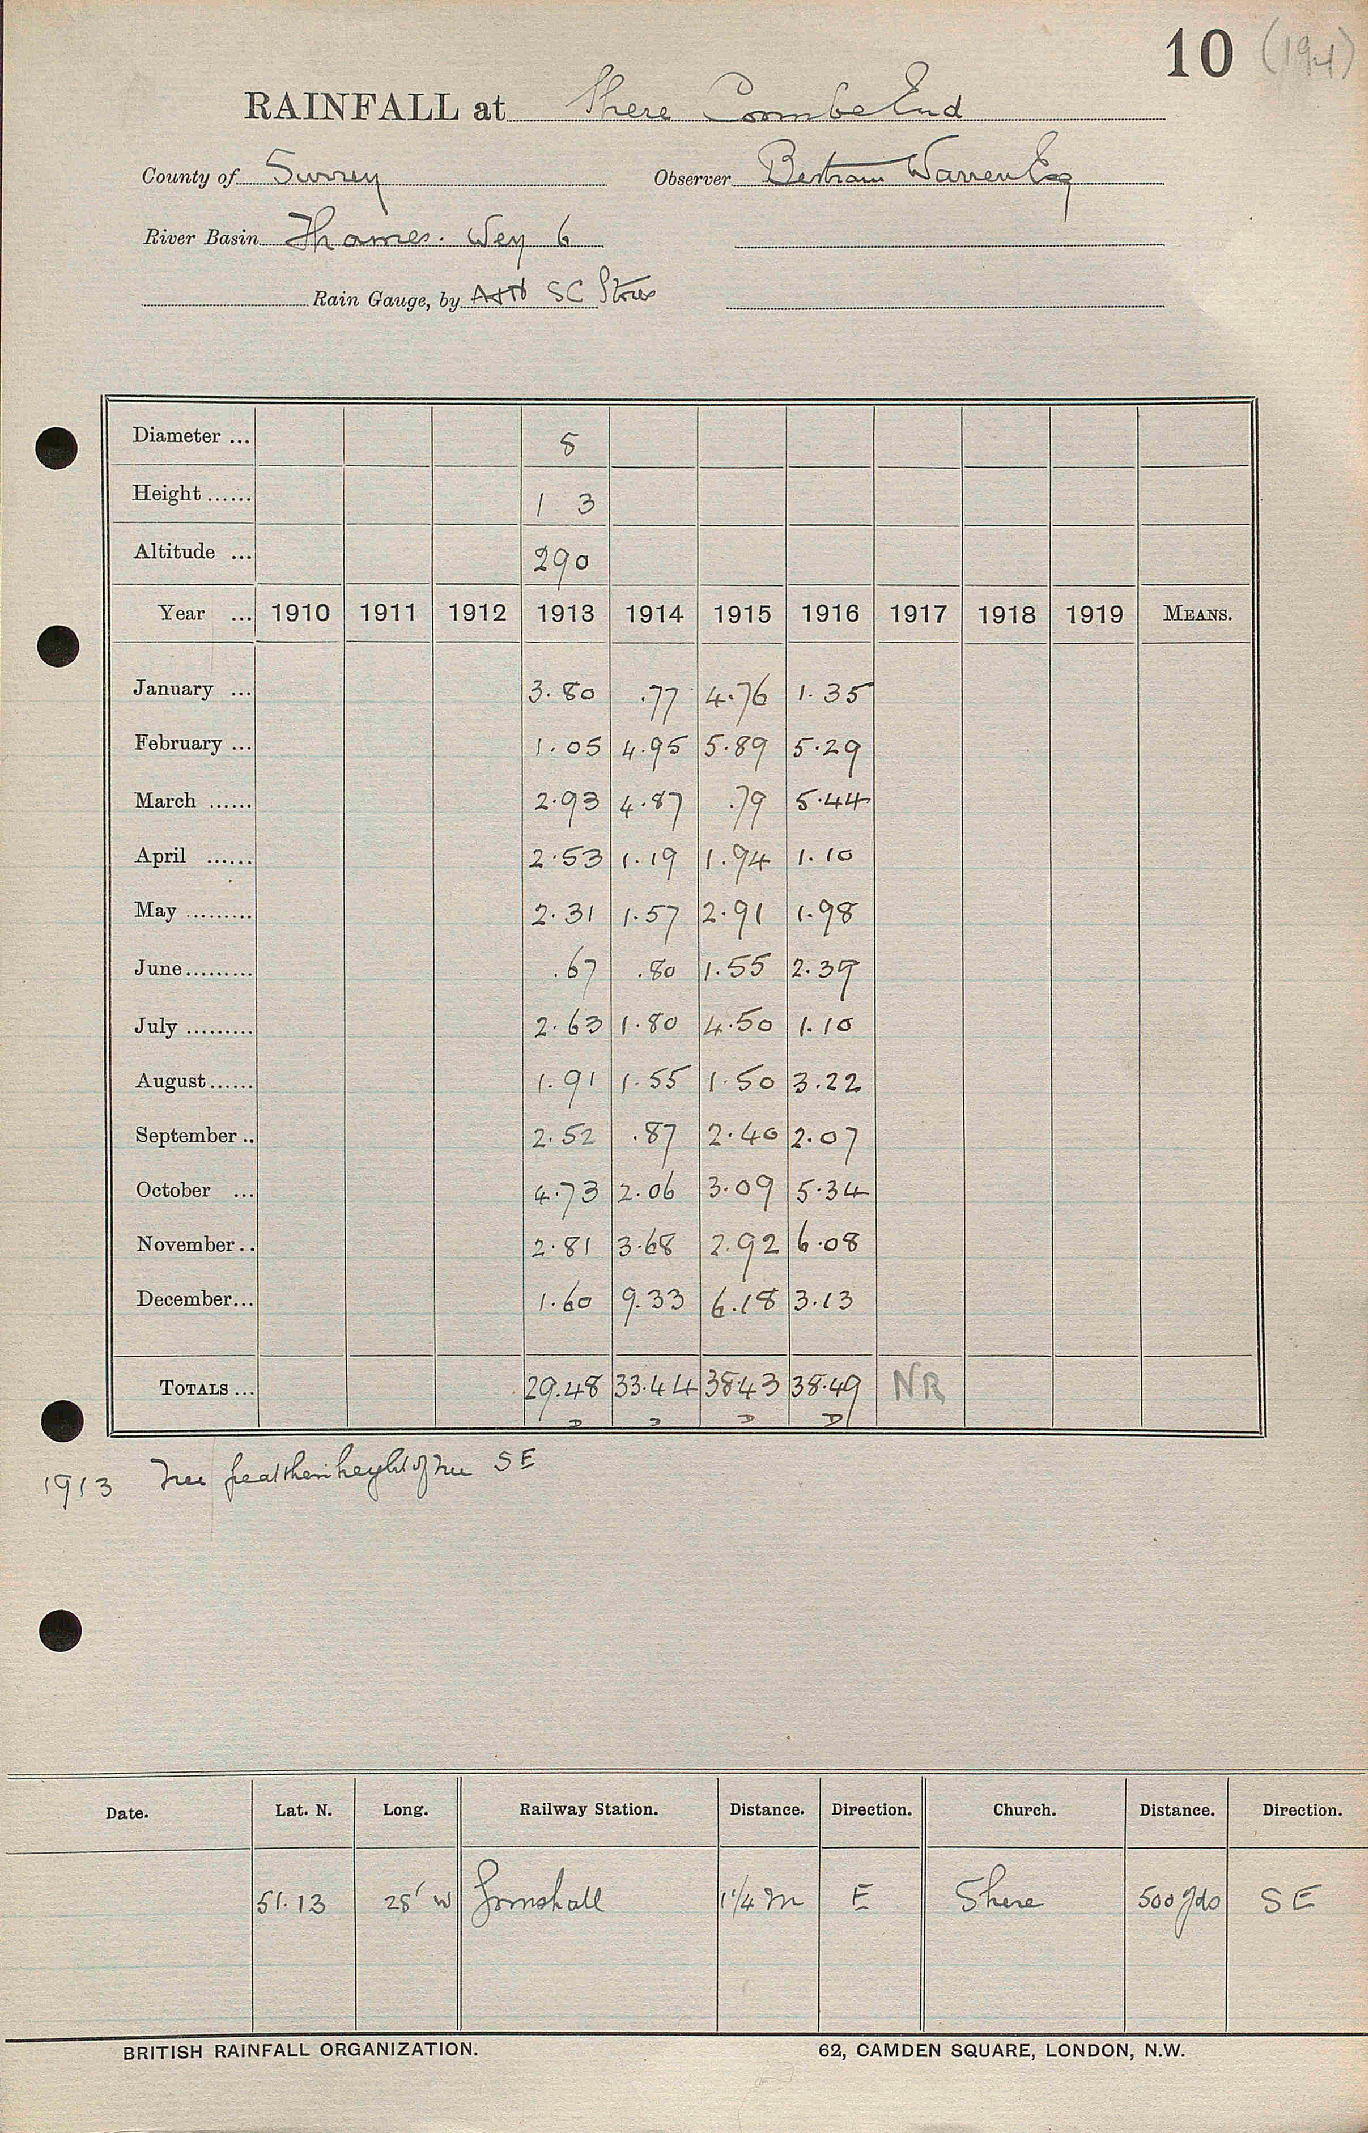 10 (191)
RAINFALL at Shere Coombe End
County of Surrey Observer Bertram Warren Esq
River Basin Thames. Wey 6
Rain Gauge, by A&N SC Stores
Diameter ... 5
Height ...... 1 3
Altitude ... 290
Year ... 1910 1911 1912 1913 1914 1915 1916 1917 1918 1919 MEANS.
January ... 3.80 .77 4.76 1.35
February ... 1.05 4.95 5.89 5.29
March ...... 2.93 4.87 .79 5.44
April ...... 2.53 1.19 1.94 1.10
May ......... 2.31 1.57 2.91 1.98
June......... .67 .80 1.55 2.39
July ......... 2.63 1.80 4.50 1.10
August...... 1.91 1.55 1.50 3.22
September .. 2.52 .87 2.40 2.07
October ... 4.73 2.06 3.09 5.34
November .. 2.81 3.68 2.92 6.08
December... 1.60 9.33 6.18 3.13
TOTALS ... 29.48 33.44 3843 38.49 NR
D D D D
1913 Tree height of tree SE
Date. Lat. N. Long. Railway Station. Distance. Direction. Church. Distance. Direction.
51.13 28' W Gomshall 1¼ m E Shere 500 yds SE
BRITISH RAINFALL ORGANIZATION. 62, CAMDEN SQUARE, LONDON, N.W.